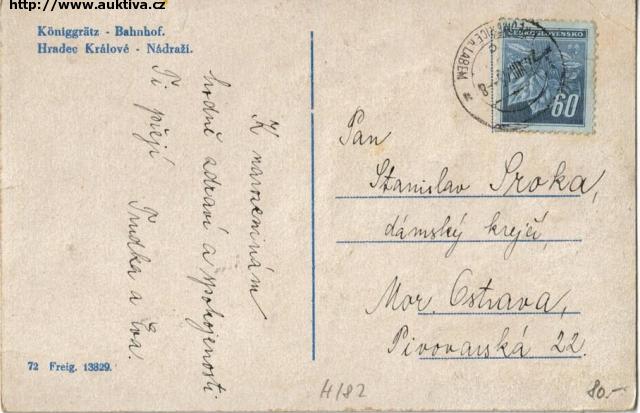 http://www.auktiva.cz
Königgrätz - Bahnhof.
Hradec Králové - Nádraží.
K narozeninám
hodně zdraví a spokojenosti
Ti přejí
Trudka a Eva.
ČESKOSLOVENSKO
60
N. LABEM
Pan
Stanislav Sroka,
dámský krejčí,
Mor. Ostrava,
Pivovarská 22.
72 Freig. 13829.
H/82
80.-